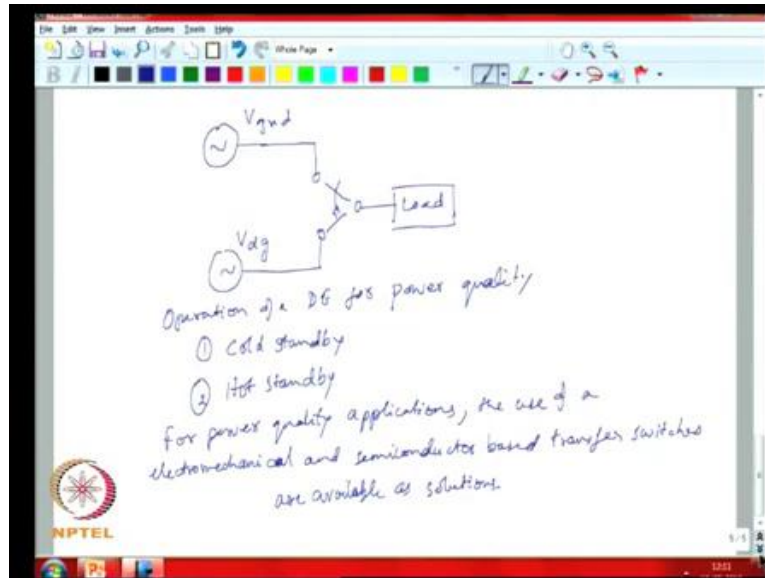 File Edit View Insert Actions Tools Help
Whole Page
B I
Vgrid
Load
Vdg
Operation of a DG for power quality
① Cold standby
② Hot standby
For power quality applications, the use of a
electromechanical and semiconductor based transfer switches
are available as solutions.
NPTEL
5/5
12:01